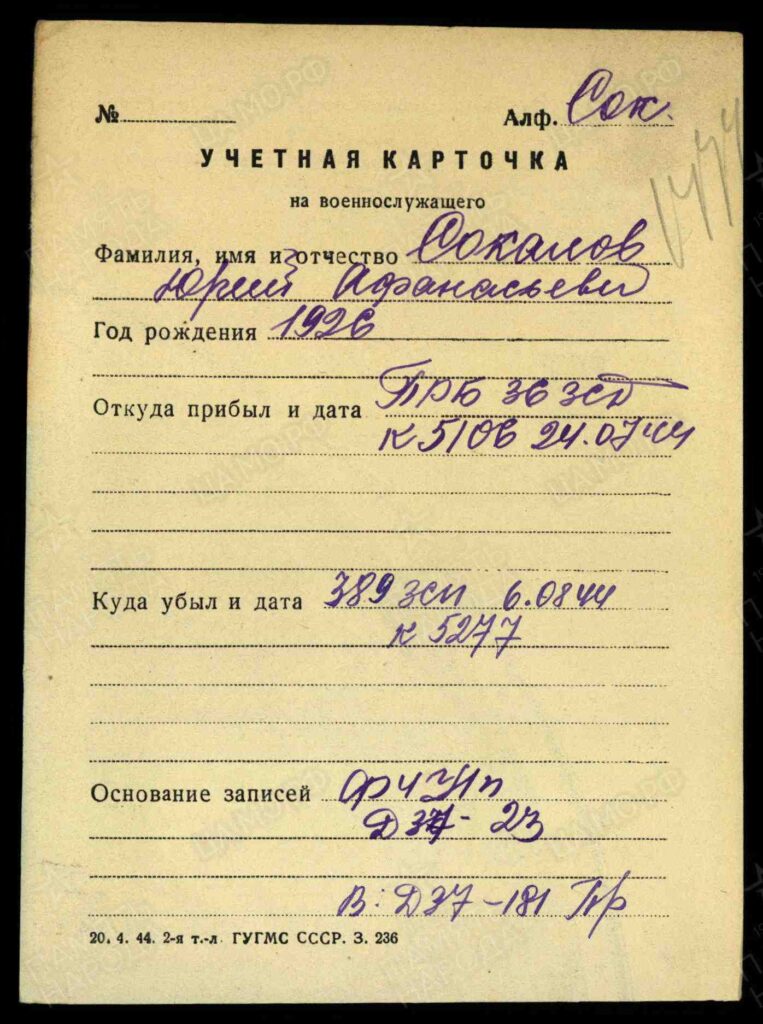 № Алф. Сок.
УЧЕТНАЯ КАРТОЧКА
на военнослужащего
Фамилия, имя и отчество Сокалов
Юрий Афанасьеви
Год рождения 1926
Откуда прибыл и дата ПРБ 36 зсд
к 5106 24.07 44
Куда убыл и дата 389 зсп 6.08 44
к 5277
Основание записей
Д 37 - 23
В: Д37 - 181 Пр
20. 4. 44. 2-я т.-л. ГУГМС СССР. З. 236